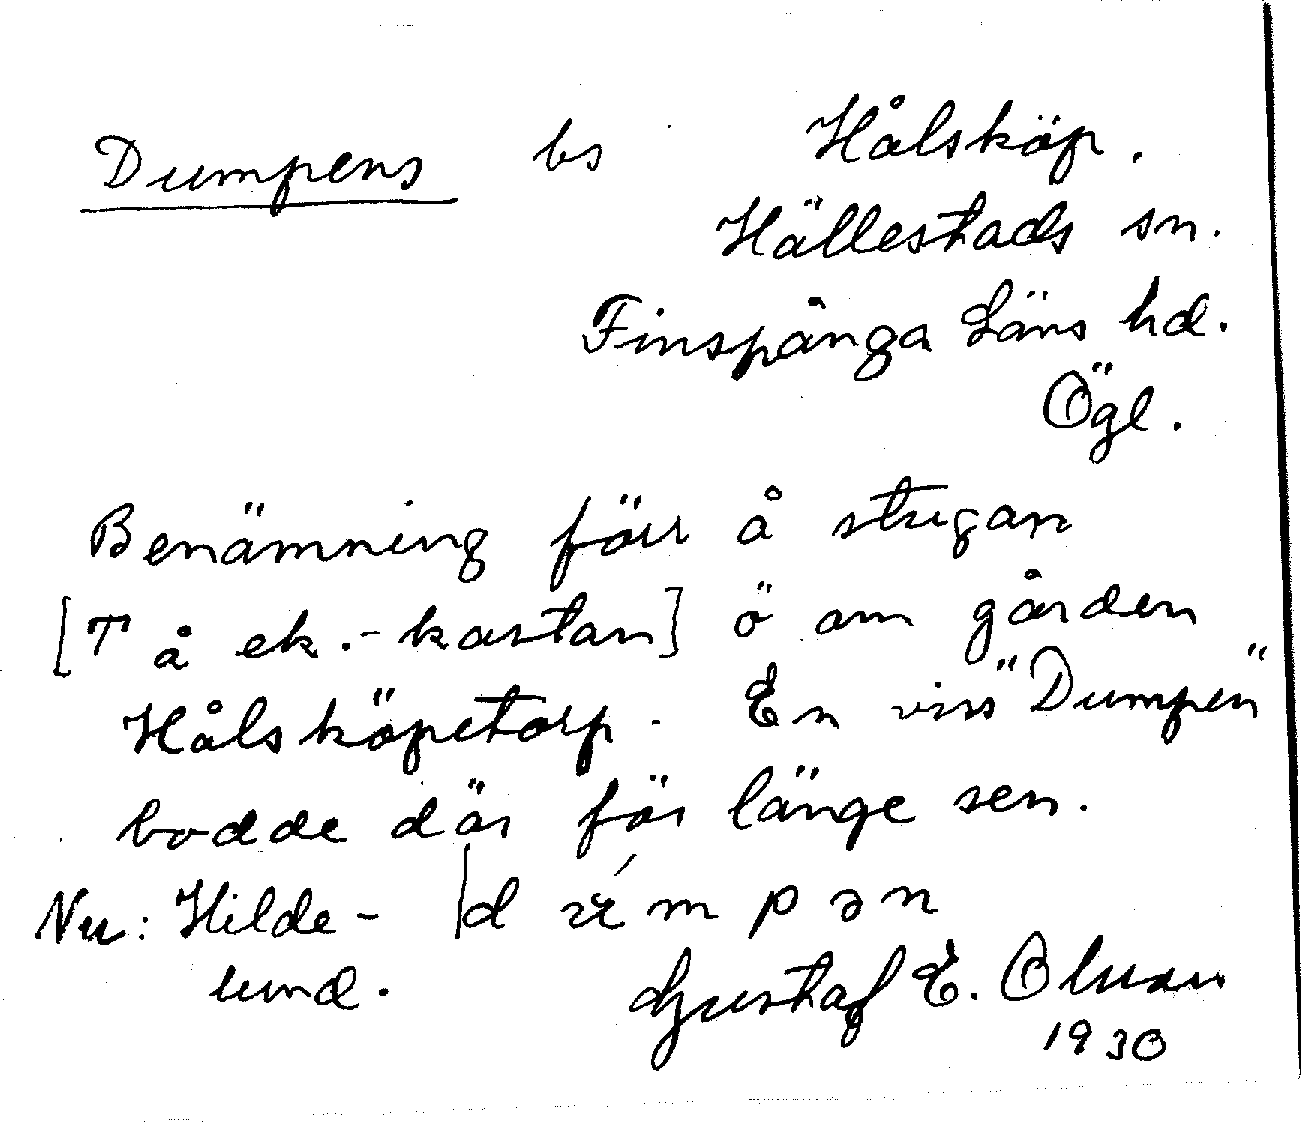 Dumpens bs Hålsköp.
Hällestads sn.
Finspånga Läns hd.
Ögl.
Benämning förr å stugan
[T å ek.-kartan] ö om gården
Hålsköpetorp. En viss "Dumpen"
bodde där för länge sen.
Nu: Hilde-
lund.
Gustaf E. Olsson
1930